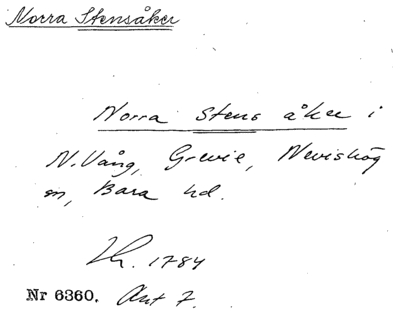 Norra Stensåker
Norra Stens åker i
N. Vång, Grevie, Nevishög
sn, Bara hd.
Lh. 1784
Nr 6360. Akt 7.